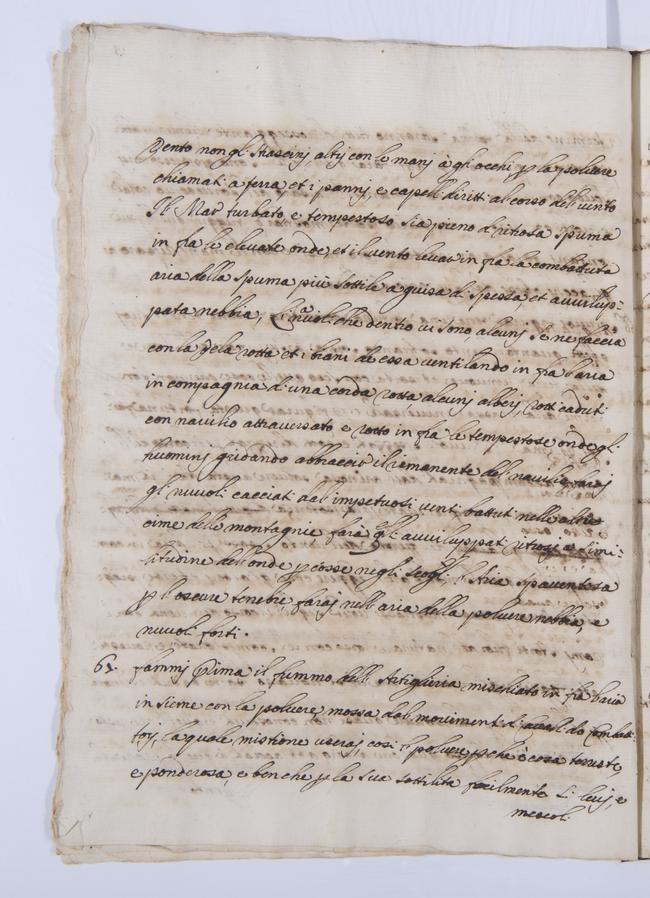 dento non gli stascinj altij con le manj à gli occhi p la polvere
chiamati a terra, et i pannj, e capelli diritti al corso dell vento
Il Mar turbato, e tempestoso sia pieno d ritrosa spuma
in fra le elevate onde, et il vento levar in fra la combattuta
aria della spuma più sottile a guisa di spessa, et avvilup-
pata nebbia, li che dentro vi sono, alcunj se ne faccia
con la vela rotta et i brani de essa ventilando in fra l'aria
in compagnia d'una corda rotta alcunj alberj rotti caduti
con navilio attraversato e rotto in fra le tempestose onde gli
huominj gridando abbraccio il remanente del navilio, faraj
gli nuvoli cacciati dall impetuosi venti battuti nelle
cime delle montagnie, farà avviluppati ritrosj a simi-
litudine dell onde pcosse negli scogli l'Aria spaventosa
p l'oscure tenebre, faraj nell aria della polvere nebbia, e
nuvoli forti.
65. farrnj Prima il fummo dell' Artigliaria mischiato in fra l'aria
insieme con la polvere, mossa dal movimenti d
torj, la quale mistione userai, così l polvere pche è cosa terrestre,
e ponderosa, e benche p la sua sottilità facilmente si levj, e
mescoli